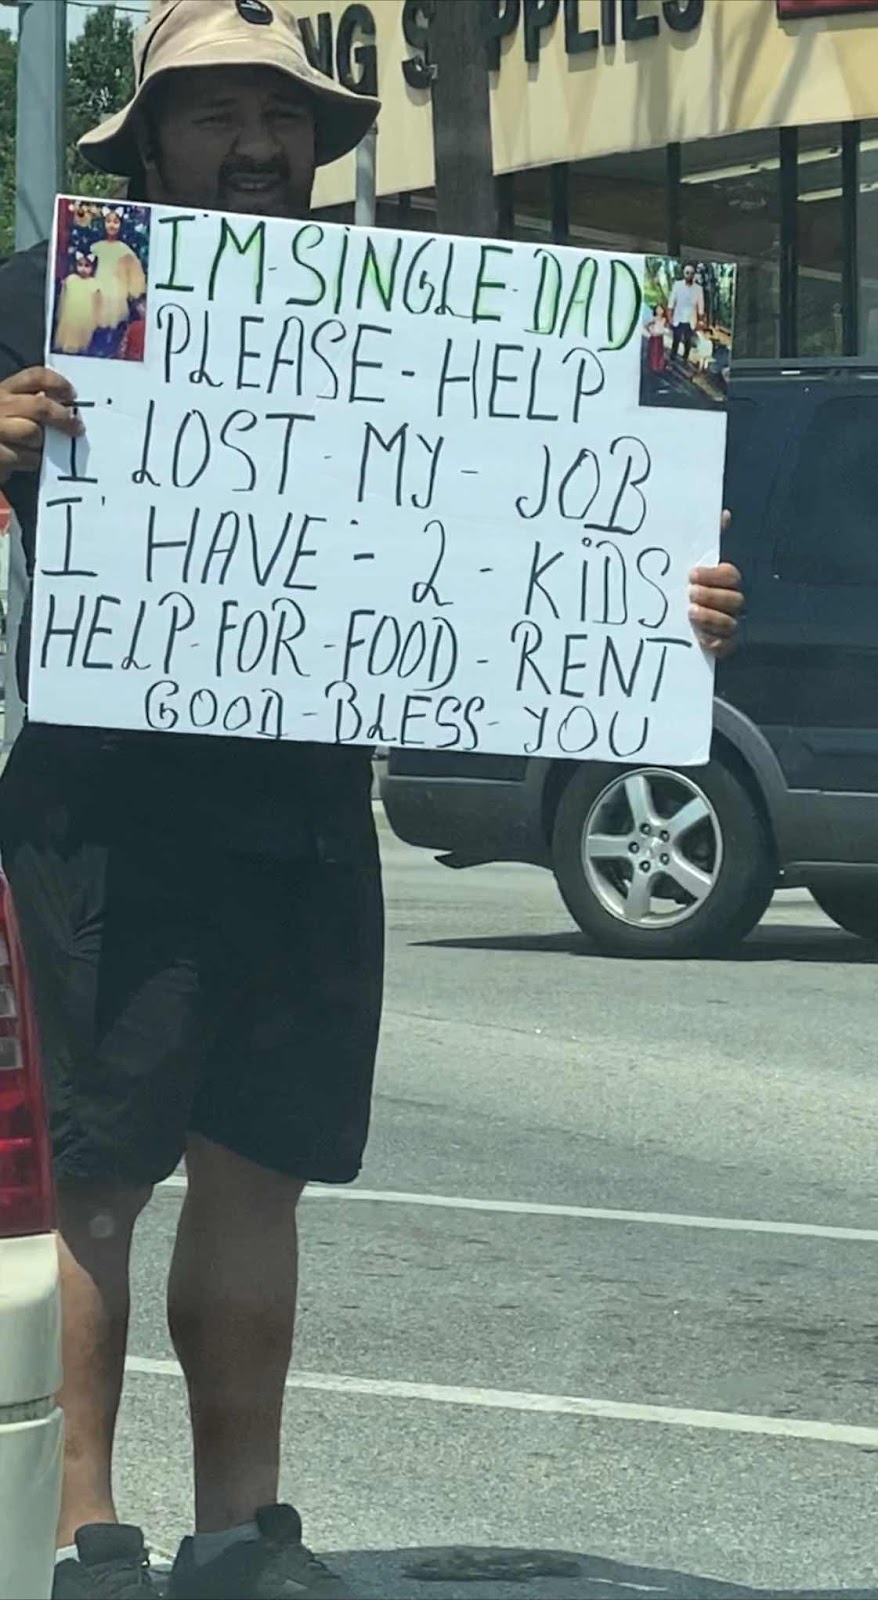 NG SUPPLIES
I'M-SiNGLE-DAD
PLEASE-HELP
I' LOST-MY-JOB
I' HAVE-2-KiDS
HELP-FOR-FOOD-RENT
GOOD-BLESS-YOU